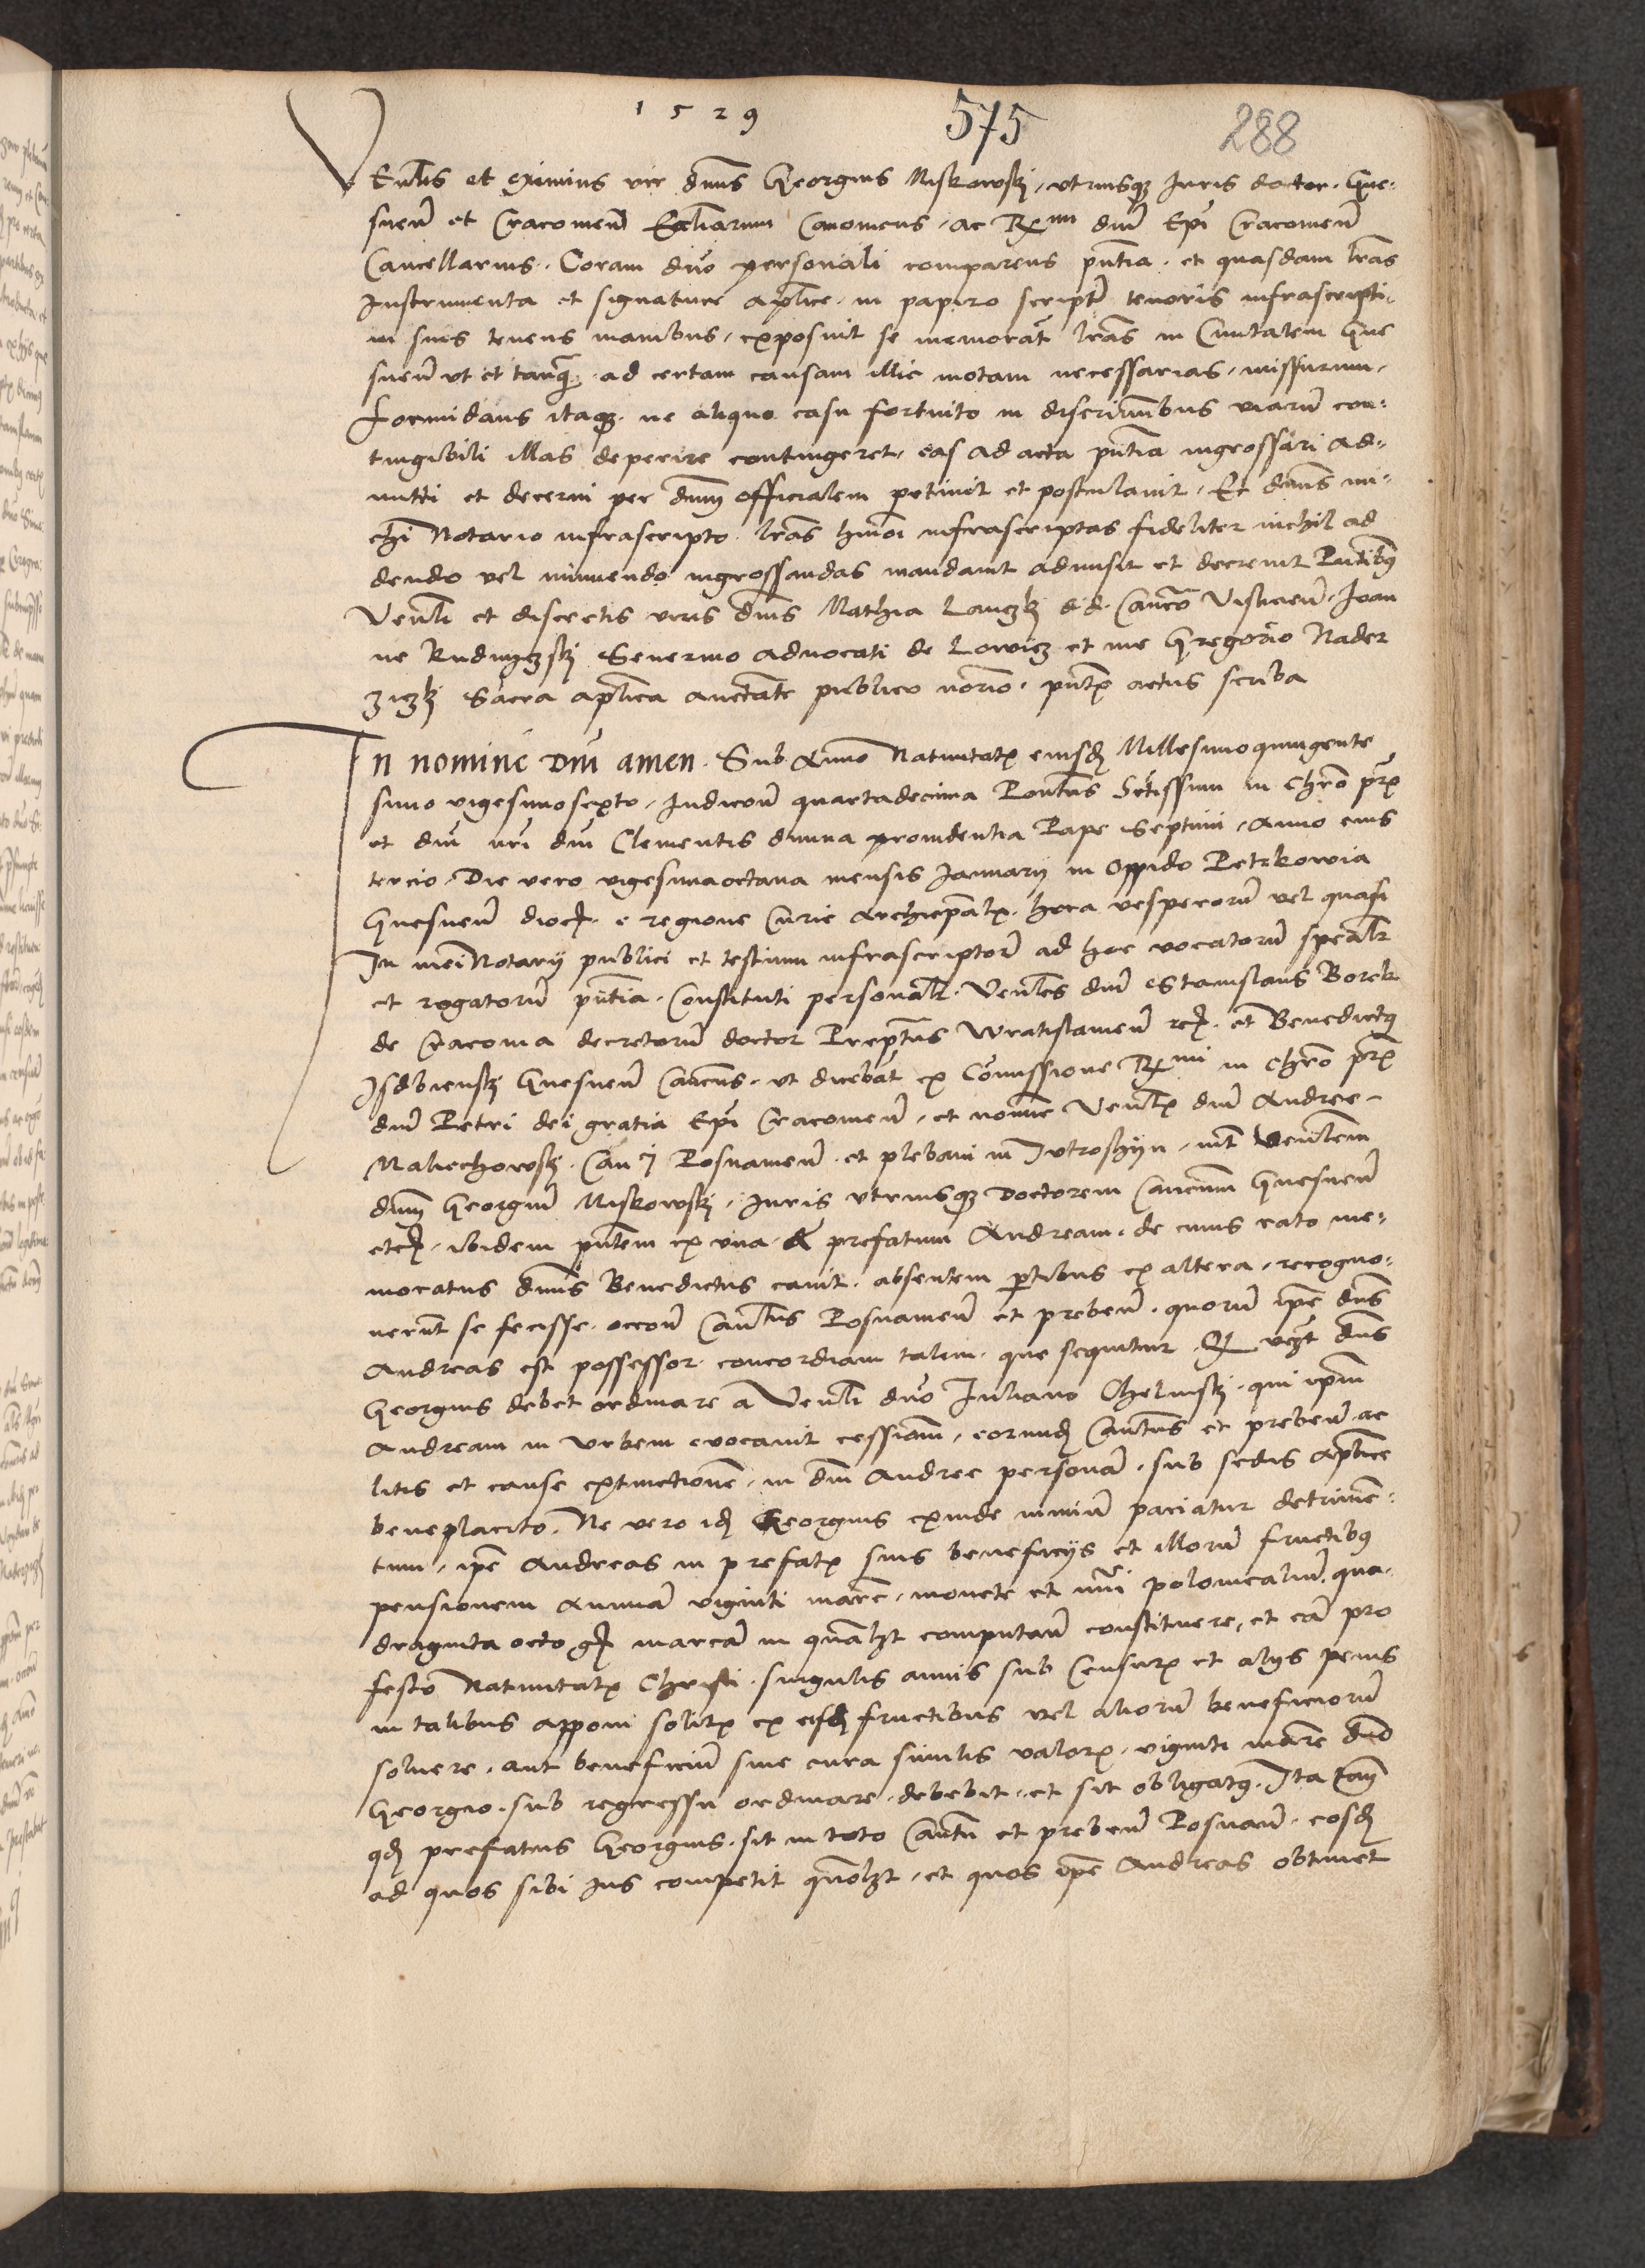 1529 575 288
Venlis et eximius vir dnus Georgius Miskowskj, vtriusq Iuris doctor, Gne-
snen et Cracouien Eccliarum Canonicus, ac Rmi dni Epi Cracouien
Cancellarius. Coram dno personali comparens pntia, et quasdam lras
Instrumenta et signature aplice, in papiro script tenoris infrascripti,
in suis tenens manibus, exposuit se memorat lras in Ciuitatem Gne
snen vt et tanq ad certam causam illic motam necessarias, missurum,
Formidans itaq, ne aliquo casu fortuito in discriminibus viarum con-
tingibili illas deperire contingeret, eas ad acta pntia ingrossari ad-
mitti et decerni per dnum officialem petiuit et postulauit, Et dnus mi-
chi Notario infrascripto, lras hmoi infrascriptas fideliter nichil ad
dendo vel minuendo ingrossandas mandauit admisit et decreuit Pntibus
Venli et discretis viris dnis Mathia Lanczkj Canco Vislicien, Joan
ne Rudnyczskj Seuerino aduocati de Lowicz et me Gregorio Nader
Sacra aplica auctate publico norio, pntis actus scriba
In nomine Dni amen. Sub Anno Natiuitatis eiusd Millesimoquingente
simo vigesimosexto, Indicon quartadecima Pontus Sctissimi in Chro pris
et dni nri dni Clementis diuina prouidentia Pape Septimi, Anno eius
tercio. Die vero vigesimaoctaua mensis Januarij in Oppido Petrkowia
Gnesnen dioc. e regione Curie Archiepalis, hora vesperorum vel quasi
In mei Notarij publici et testium infrascriptor ad hoc vocatorum spealr
et rogatorum pntia, Constituti personalr. Venles dni Stanislaus Borek
de Cracouia decretorum doctor Preptus Wratislauien rc. et Benedictus
Isdbienskj Gnesnen Cancus, vt dicebat ex Comissione Rmi in Chro pris
dni Petri dei gratia Epi Cracouien, et nomine Venlis dni Andree
Maliechowskj. Can Posnanien, et plebani in Jvtroshijn, int Venlem
dnum Georgium Miskowskj, Iuris vtriusq Doctorem Canonicum Gnesnen
etc, ibidem pntem ex vna & prefatum Andream, de cuius rato me-
moratus dnus Benedictus cauit, absentem ptibus ex altera, recogno-
uerunt se fecisse, occon Cantus Posnanien et preben, quorum ipe dnus
Andreas est possessor, concordiam talem, que sequitur. Q dnus
Georgius debet ordinare a Venli dno Iuliano Chelmskj, qui ipm
Andream in Vrbem euocauit cessionem, eorund Cantus et preben ac
litis et cause extinctionem, in dni Andree persona, sub sedis aplice
beneplacito. Ne vero id Georgius exinde nimium paciatur detrimen-
tum, ipe Andreas in prefatis suis beneficijs et illorum fructibus
pensionem annuam viginti marc, monete et nri polonicalium, qua-
draginta octo gr marcam in qualzt computan constituere, et eam pro
festo Natiuitatis Christi, singulis annis sub Censuris et alijs penis
in talibus apponi solitis ex eisd fructibus vel aliorum beneficiorum
soluere, aut beneficium sine cura similis valoris, viginti marc dno
Georgio, sub regressu ordinare, debebit, et sit obligatus. Ita tam
qd prefatus Georgius, sit in toto Cantu et preben Posnan, eosd
ad quos sibi ius competit quolzt, et quos ipe Andreas obtinet